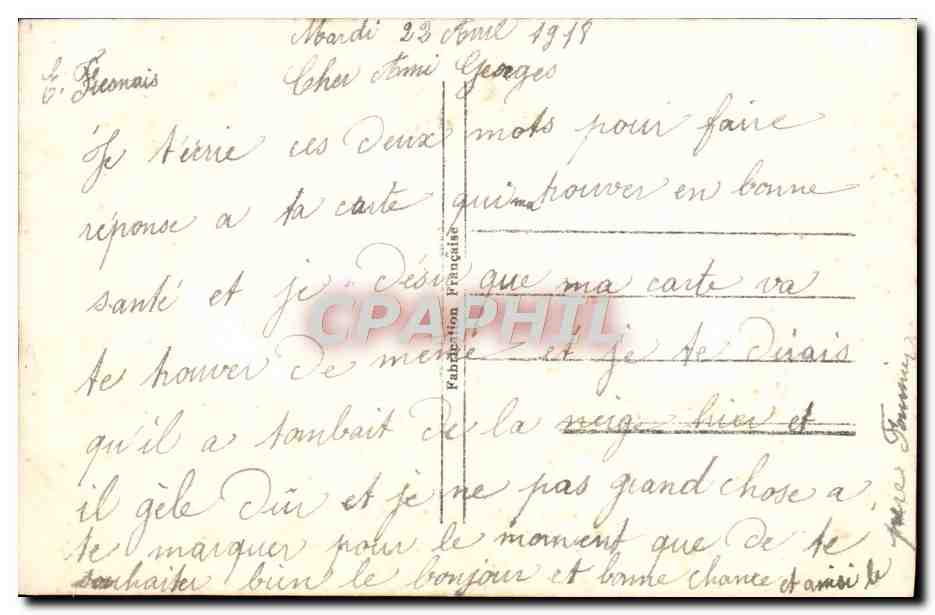 Mardi 22 Avril 1918
E. Fresnais
Cher Ami Georges
Je t'écrie ces deux mots pour faire
réponse a ta carte qui ma trouver en bonne
santé et je désir que ma carte va
te trouver de même et je te dirais
qu'il a tombait de la neige hier et
il gèle dûr et je ne pas grand chose a
te marquer pour le moment que de te
souhaiter bien le bonjour et bonne chance et ainsi le
père
Fabrication Française
CPAPHIL